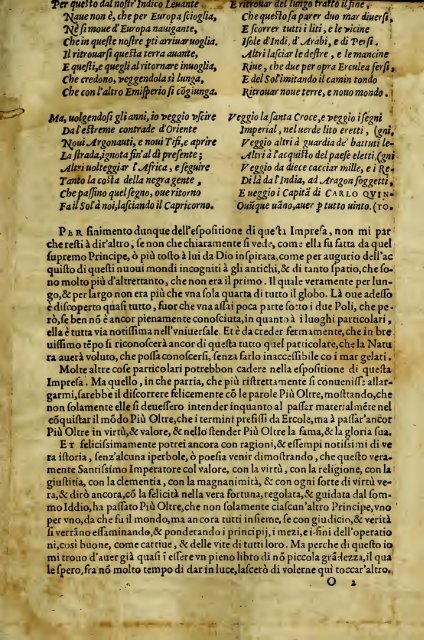 Per questo dal nostr'Indico Leuante
Naue non è, che per Europa scioglia,
Nè si moue d'Europa nauigante,
Che in queste nostre pti arriuar uoglia.
Il ritrouarsi questa terra auante,
E questi, e quegli al ritornare inuoglia,
Che credono, veggendola sì lunga,
Che con l'altro Emisperio si cōgiunga.
Ma, uolgendosi gli anni, io veggio vscire
Da l'estreme contrade d'Oriente
Noui Argonauti, e noui Tifi, e aprire
La strada, ignota fin'al dì presente;
Altri uolteggiar l'Africa, e seguire
Tanto la costa della negra gente
Che passino quel segno, oue ritorno
Fa il Sol'à noi, lasciando il Capricorno.
E ritrouar del lungo tratto il fine,
Che questo fa parer duo mar diuersi,
E scorrer tutti i liti, e le vicine
Isole d'Indi, d'Arabi, e di Persi.
Altri lasciar le destre, e le mancine
Riue, che due per opra Erculea fersi.
E del Sol imitando il camin tondo
Ritrouar noue terre, e nouo mondo.
Veggio la santa Croce, e veggio i segni
Imperial, nel uerde lito eretti, (gni,
Veggio altri à guardia de' battuti le-
Altri à l'acquisto del paese eletti, (gni
Veggio da diece cacciar mille, e i Re-
Di là da l'India, ad Aragon soggetti,
E veggo i Capitā di CARLO QVIN-
Ouūque uāno, auer p tutto uinto. (TO.
PER finimento dunque dell'espositione di questa Impresa, non mi par
che resti à dir'altro, se non che chiaramente si vede, come ella fu fatta da quel
supremo Principe, ò più tosto à lui da Dio inspirata, come per augurio dell'ac
quisto di questi nuoui mondi incogniti à gli antichi, & di tanto spatio, che so-
no molto più d'altrettanto, che non era il primo. Il quale veramente per lun-
go, & per largo non era più che vna sola quarta di tutto il globo. Là oue adesso
è discoperto quasi tutto, fuor che vna assai poca parte sotto i due Poli, che pe-
rò, se ben nō è ancor pienamente conosciuta, in quanto à i luoghi particolari,
ella è tutta via notissima nell'vniuersale. Et è da creder fermamente, che in bre
uissimo tēpo si riconoscerà ancor di questa tutto quel particolare, che la Natu
ra auerà voluto, che possa conoscersi, senza farlo inaccessibile co i mar gelati.
Molte altre cose particolari potrebbon cadere nella espositione di questa
Impresa. Ma quello, in che parria, che più ristrettamente si conuenisse allar-
garmi, sarebbe il discorrere felicemente cō le parole Più Oltre, mostrando, che
non solamente elle si deuessero intender inquanto al passar materialmēte nel
cōquistar il mōdo Più Oltre, che i termini prefissi da Ercole, ma à passar'ancor
Più Oltre in virtù, & valore, & nello stender Più Oltre la fama, & la gloria sua.
ET felicissimamente potrei ancora con ragioni, & essempi notissimi di ve
ra istoria, senz'alcuna iperbole, ò poesia venir dimostrando, che questo vera-
mente Santissimo Imperatore col valore, con la virtù, con la religione, con la
giustitia, con la clementia, con la magnanimità, & con ogni sorte di virtù ve-
ra, & dirò ancora, cō la felicità nella vera fortuna, regolata, & guidata dal som-
mo Iddio, ha passato Più Oltre, che non solamente ciascun'altro Principe, vno
per vno, da che fu il mondo, ma ancora tutti insieme, se con giudicio, & verità
si verrāno essaminando, & ponderando i principij, i mezi, e i fini dell'operatio
ni, così buone, come cattiue, & delle vite di tutti loro. Ma perche di questo io
mi trouo d'auer già quasi i essere vn pieno libro di nō piccola grādezza, il qua
le spero, fra nō molto tempo di dar in luce, lascerò di volerne qui toccar'altro.
O 2